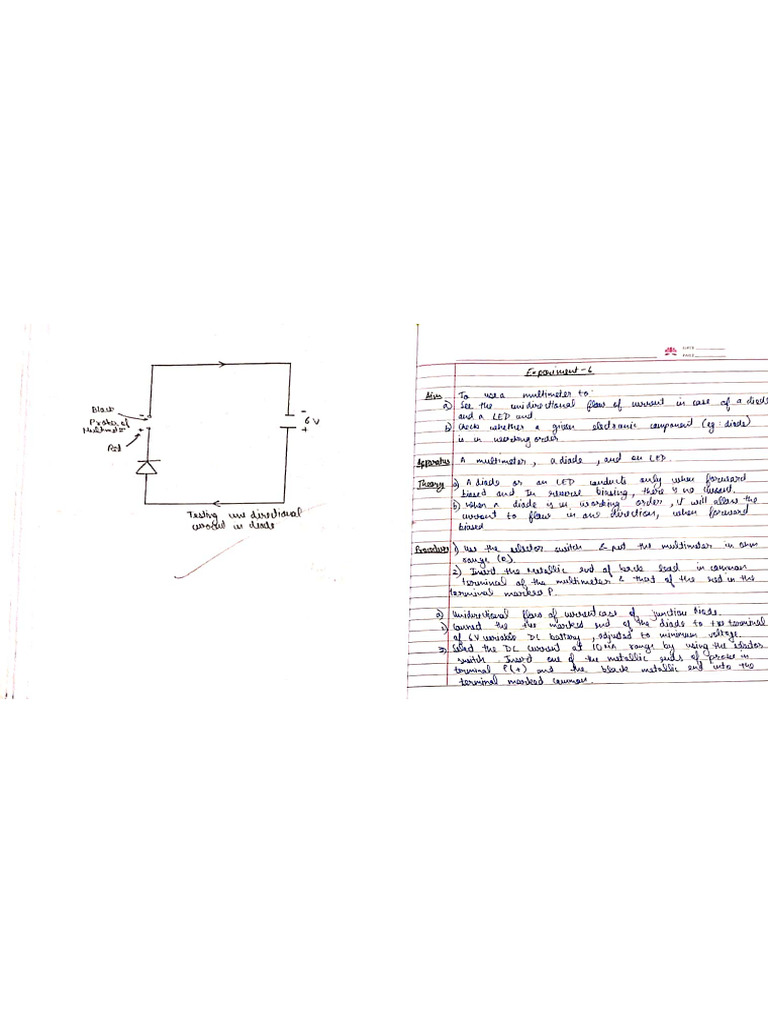 Black
Probes of
Multimeter
Red
-
6V
+
Testing uni directional
in diode
DATE
PAGE
Experiment-6
Aim To use a multimeter to
a) See the unidirectional flow of current in case of a diode
and a LED and
b) Check whether a given electronic component (eg: diode)
is in working order
Apparatus A multimeter, a diode, and an LED.
Theory a) A diode or an LED conducts only when forward
biased and In reverse biasing, there is no current.
b) When a diode is in working order, it will allow the
current to flow in one direction, when forward
biased
Procedure 1) Use the selector switch & put the multimeter in ohm
range (R).
2) Insert the metallic end of back lead in common
terminal of the multimeter & that of the red in the
terminal marked P.
a) Unidirectional flow of current case of junction diode.
1) the +ve marked end of the diode to +ve terminal
of 6V variable DC battery, adjusted to minimum voltage.
2) the DC current at 10mA range by using the selector
switch. Insert one of the metallic ends of probe in
terminal P(+) and the black metallic end into the
terminal marked common.